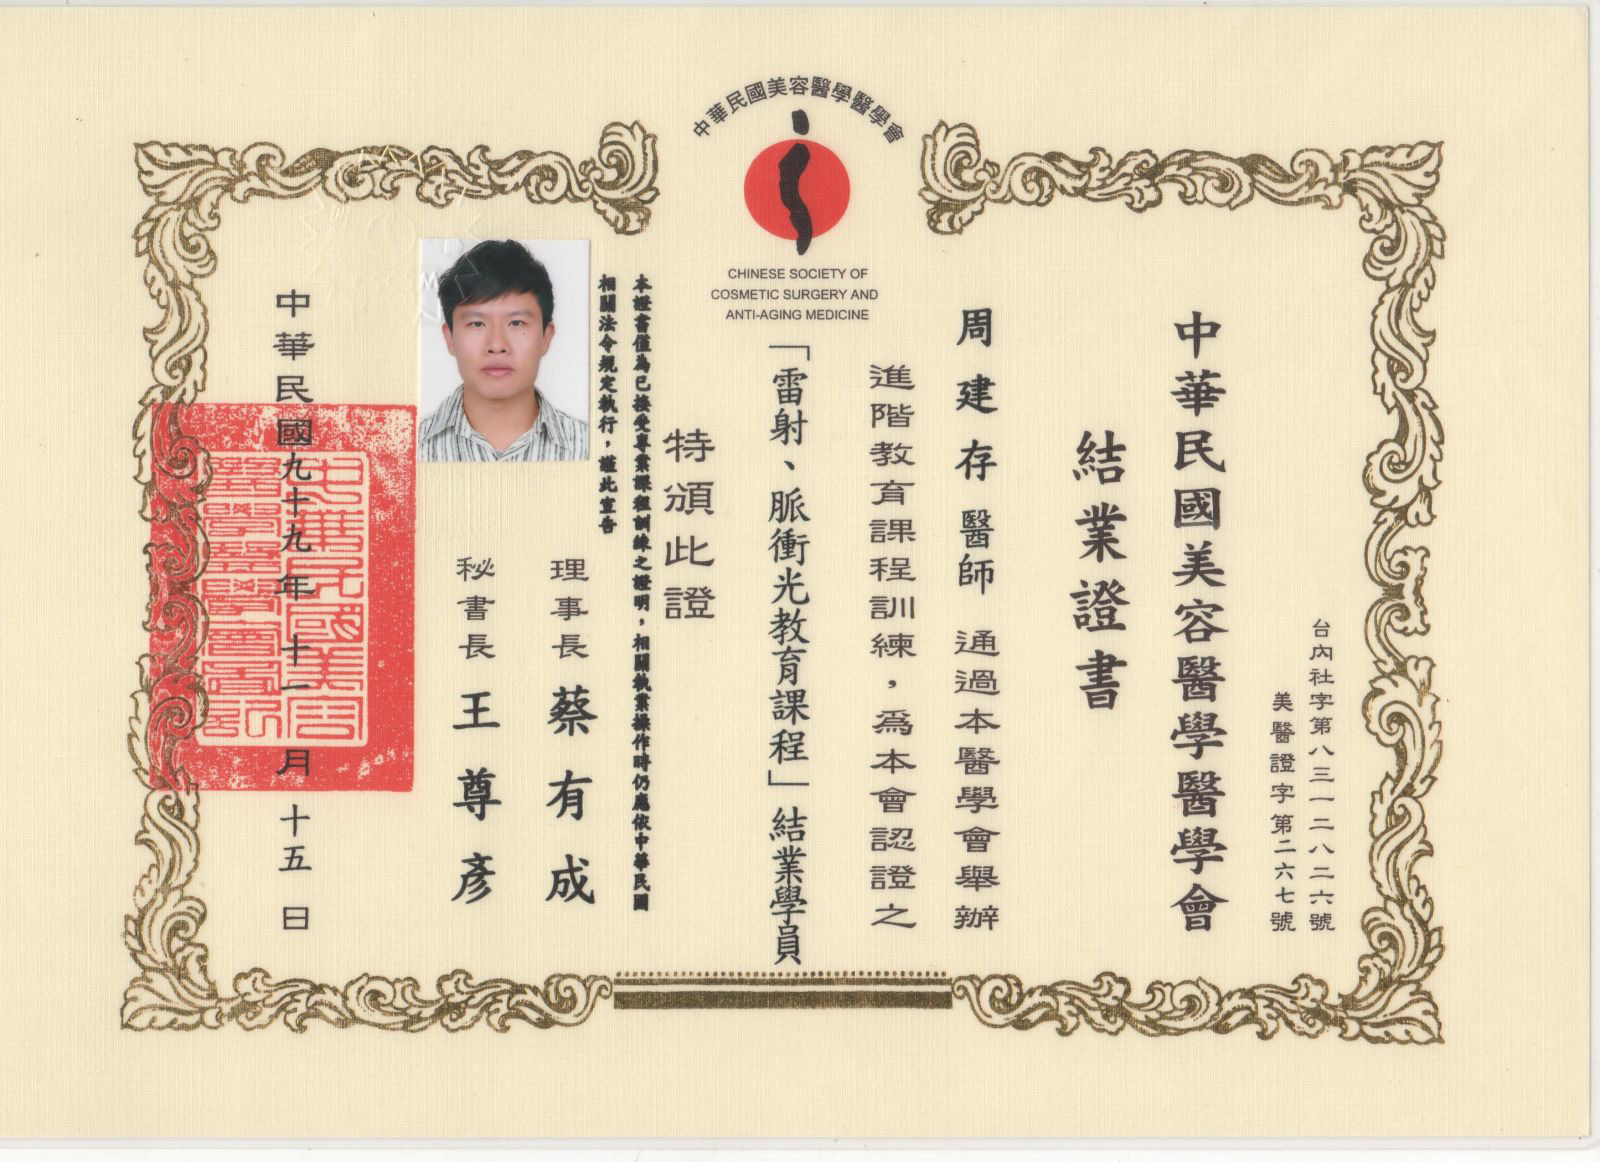 中華民國美容醫學醫學會
CHINESE SOCIETY OF
COSMETIC SURGERY AND
ANTI-AGING MEDICINE
台內社字第八三一二八二六號
美醫證字第二六七號
中華民國美容醫學醫學會
結業證書
周建存醫師 通過本醫學會舉辦
進階教育課程訓練，為本會認證之
「雷射、脈衝光教育課程」結業學員
特頒此證
本證書僅為已接受專業課程訓練之證明，相關執業操作時仍應依中華民國
相關法令規定執行，謹此宣告
理事長 蔡有成
秘書長 王尊彥
中華民國九十九年十一月十五日